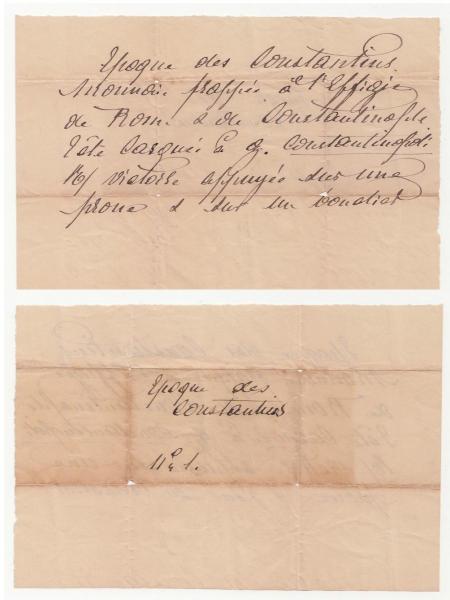 Epoque des Constantins
Monnaie frappée à l'Effigie
de Rome & de Constantinople
Tête casquée à g. Constantinopoli
R/ victoire appuyée sur une
proue & sur un bouclier
Epoque des
Constantins
N° 1.